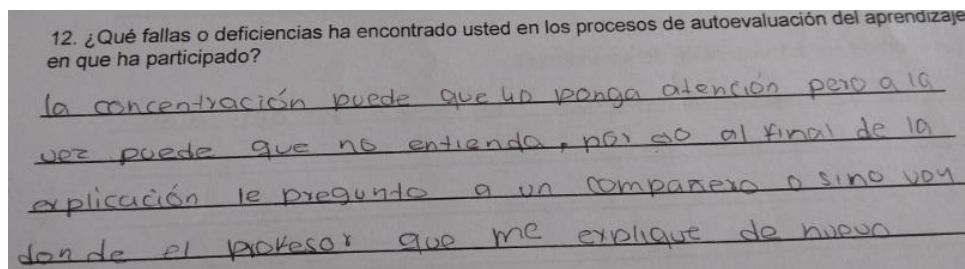 12. ¿Qué fallas o deficiencias ha encontrado usted en los procesos de autoevaluación del aprendizaje
en que ha participado?
la concentración puede que yo ponga atención pero a la
vez puede que no entienda, por eso al final de la
explicación le pregunto a un compañero o sino voy
donde el profesor que me explique de nuevo